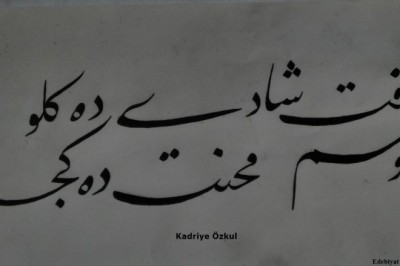 قت شادی ده كلو
وسم محنت ده كچـ
Kadriye Özkul
Edebiyat